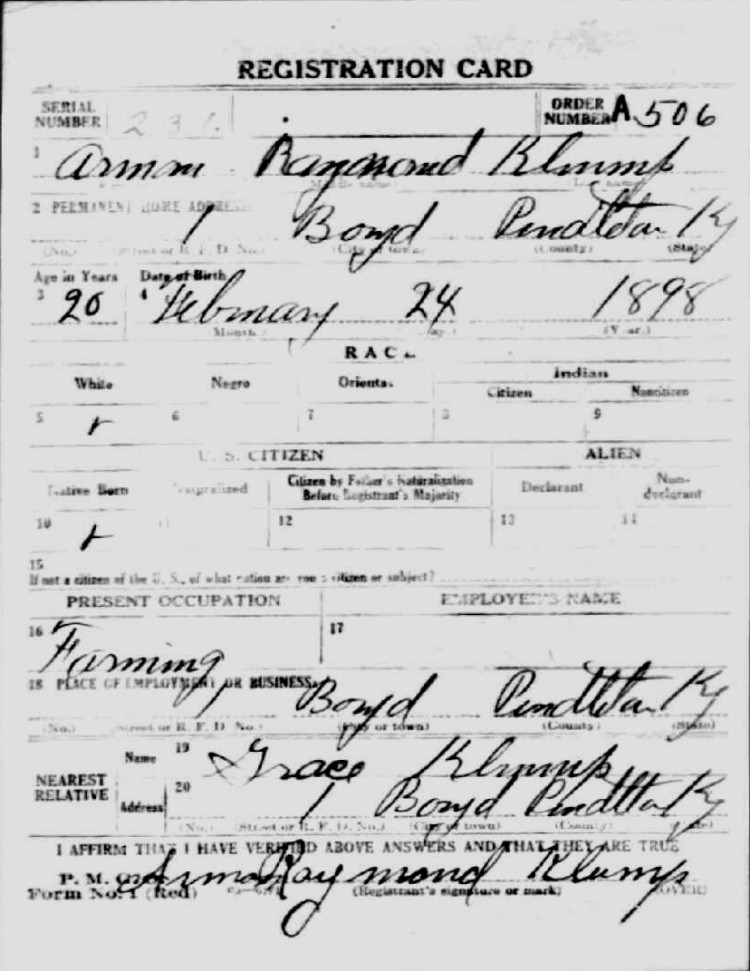 REGISTRATION CARD
SERIAL NUMBER 231. ORDER NUMBER A 506
1 Arman Raymond Klump
2 PERMANENT HOME ADDRESS
1 Boyd Pendleton Ky
(No.) (Street or R. F. D. No.) (City or town) (County) (State)
Age in Years Date of Birth
3 20 4 February 24 1898
(Month.) (Day.) (Year.)
RACE
White Negro Oriental Indian
Citizen Noncitizen
5 ✓ 6 7 8 9
U. S. CITIZEN ALIEN
Native Born Naturalized Citizen by Father's Naturalization Before Registrant's Majority Declarant Non-declarant
10 ✓ 11 12 13 14
15
If not a citizen of the U. S., of what nation are you a citizen or subject?
PRESENT OCCUPATION EMPLOYER'S NAME
16 Farming 17
18 PLACE OF EMPLOYMENT OR BUSINESS
Boyd Pendleton Ky
(No.) (Street or R. F. D. No.) (City or town) (County) (State)
NEAREST RELATIVE Name 19 Grace Klump
Address 20 1 Boyd Pendleton Ky
(No.) (Street or R. F. D. No.) (City or town) (County) (State)
I AFFIRM THAT I HAVE VERIFIED ABOVE ANSWERS AND THAT THEY ARE TRUE
P. M. G. O. Arman Raymond Klump
Form No. 1 (Red) (Registrant's signature or mark) (OVER)